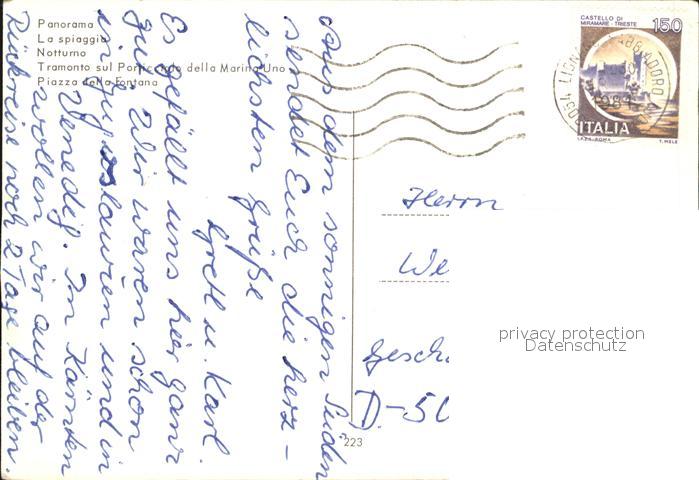 Panorama
La spiaggia
Notturno
Tramonto sul Porticciolo della Marina Uno
Piazza della Fontana
Aus dem sonnigen Süden
sendet Euch die herz-
lichsten Grüße
Gretl u. Karl.
Es gefällt uns hier ganz
gut. Wir waren schon
in Jugoslawien und in
Venedig. In Kärnten
wollen wir auf der
Rückreise noch 2 Tage bleiben.
CASTELLO DI
MIRAMARE - TRIESTE
150
ITALIA
I.P.Z.S. ROMA
T. MELE
Herrn
We
Gesch
D-50
223
privacy protection
Datenschutz